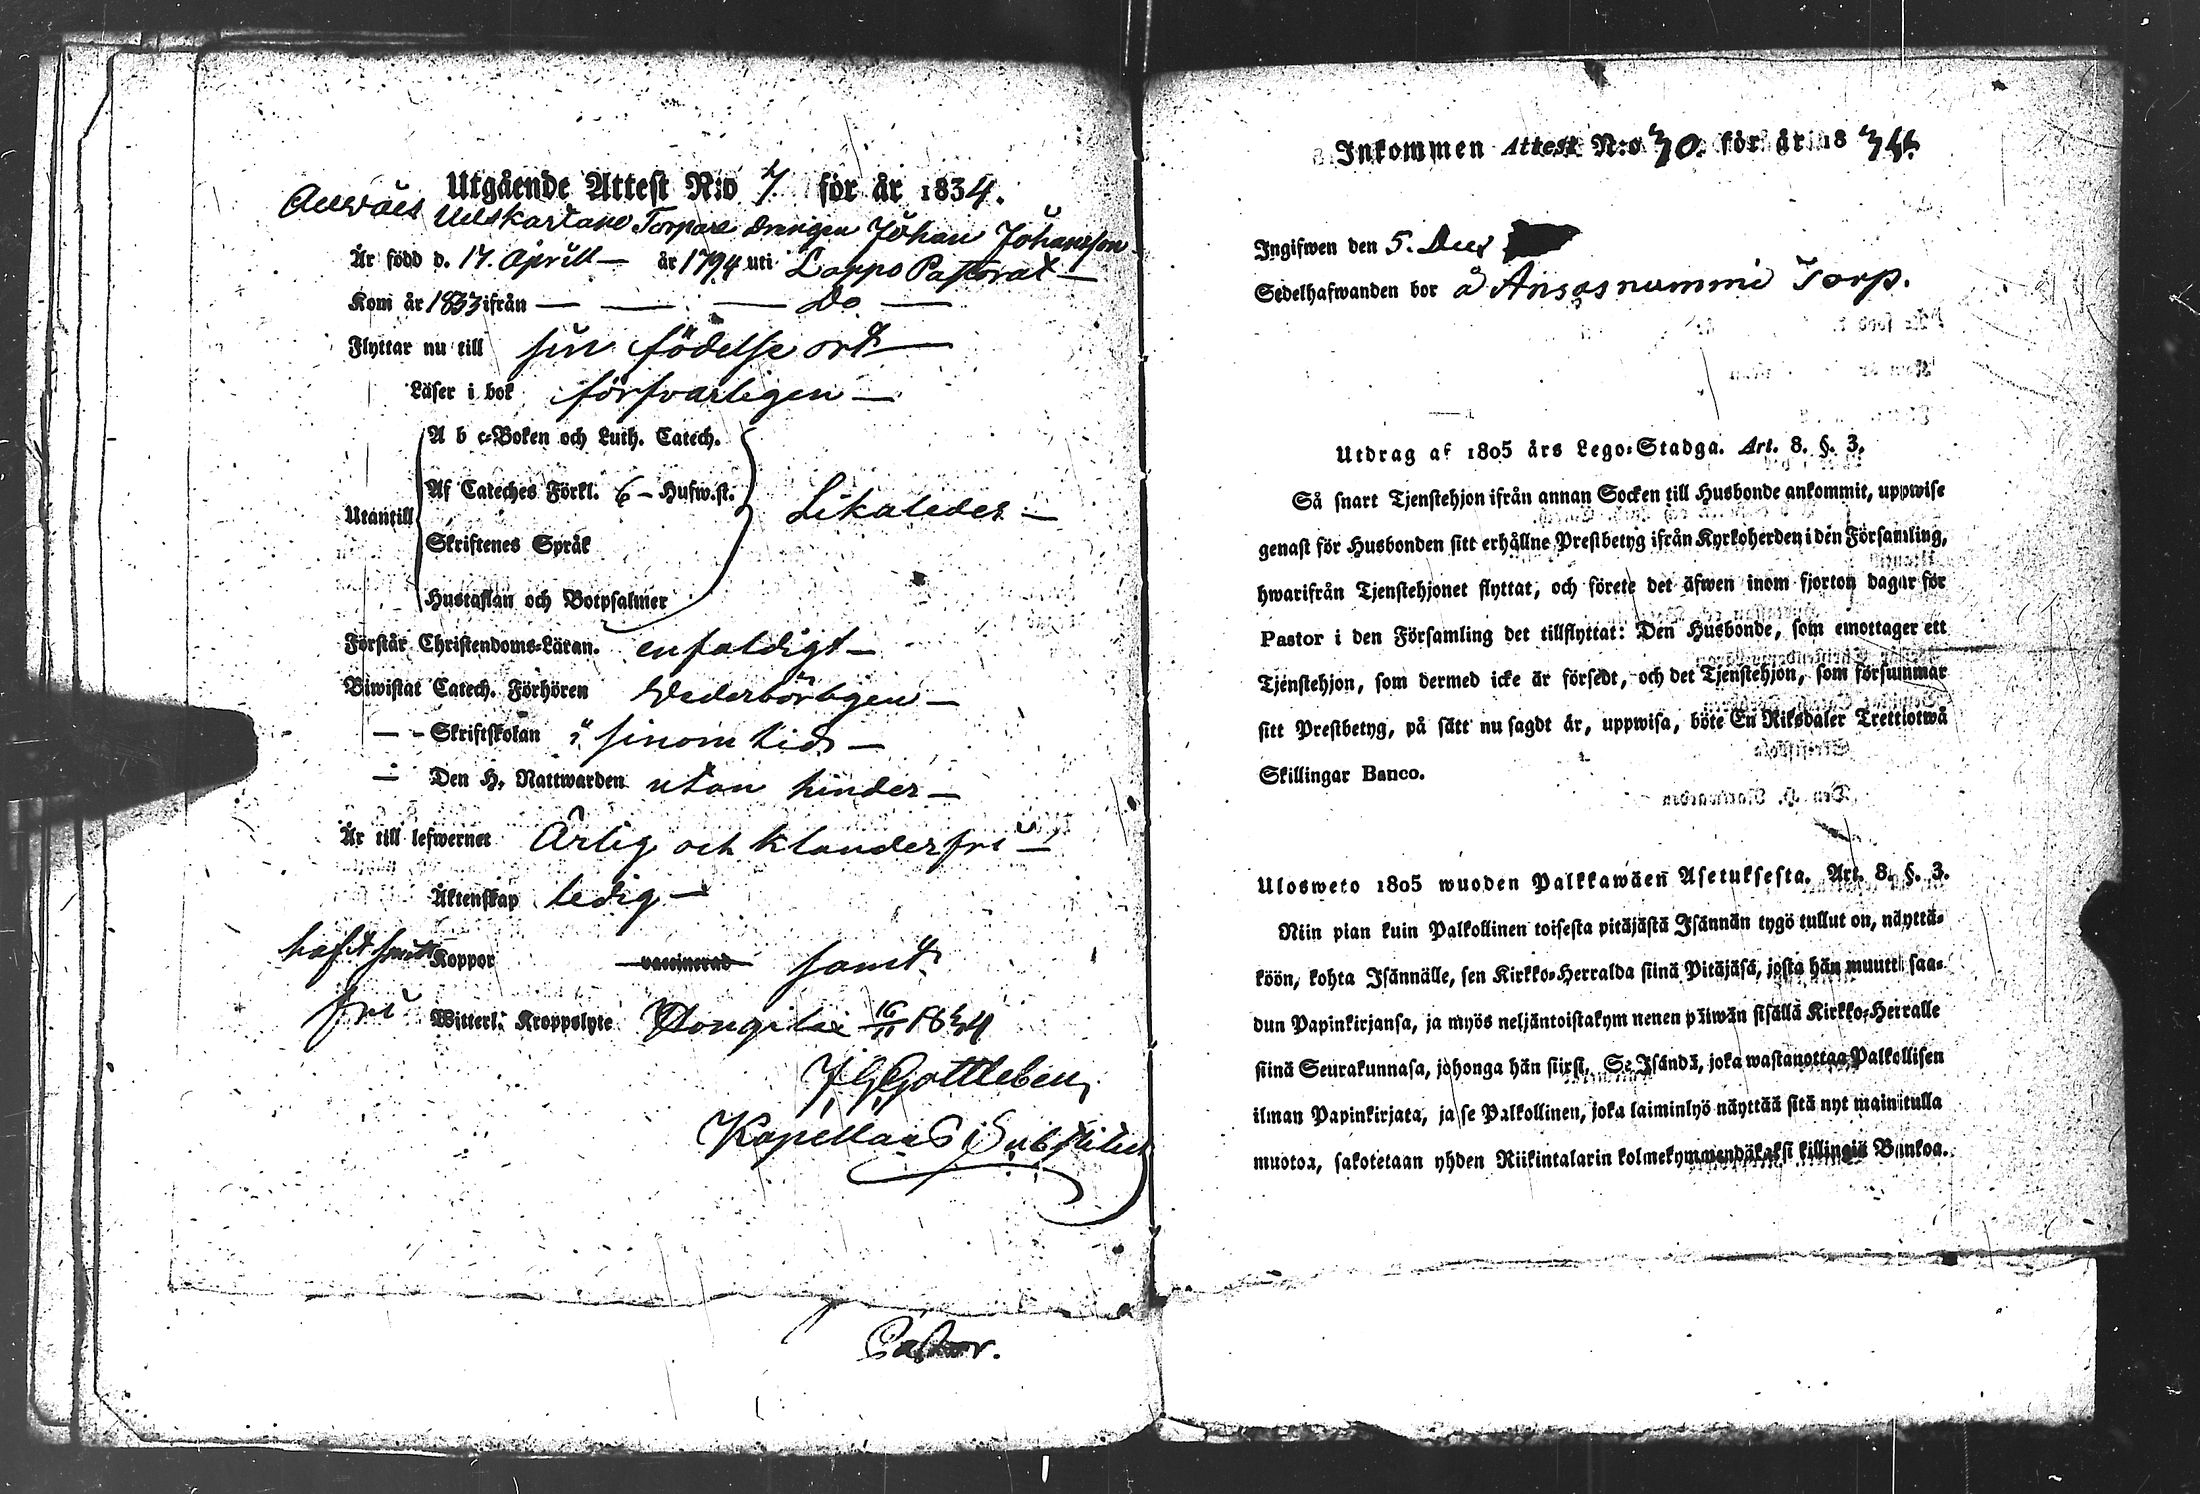 Utgående Attest N:o 7 för år 1834.
Torpare drengen Johan Johansson
Är född d. 17. Aprill — år 1794 uti Lappo Pastorat —
Kom år 1833 ifrån — — — Do —
Flyttar nu till sin födelse ort —
Läser i bok försvarligen —
A b c-Boken och Luth. Catech.
Af Cateches Förkl. 6 — Hufw.st.
Utantill Likaledes —
Skriftenes Språk
Hustaflan och Botpsalmer
Förstår Christendoms-Läran. enfaldigt —
Biwistat Catech. Förhören Vederbörligen —
— - Skriftskolan i sinom tid —
— Den H. Nattwarden utan hinder —
Är till lefwernet Ärlig och klanderfri —
Äktenskap ledig —
haft Koppor vaccinerad samt
fri Witterl. Kroppslyte 16/11 1834
J G Gottleben
Kapellans Substitut
Pastor.
Inkommen Attest N:o 30. för år 1834.
Ingifwen den 5. Decs
Sedelhafwanden bor å Ansasnummi Torp.
Utdrag af 1805 års Lego-Stadga. Art. 8. §. 3.
Så snart Tjenstehjon ifrån annan Socken till Husbonde ankommit, uppwise
genast för Husbonden sitt erhållne Prestbetyg ifrån Kyrkoherden i den Församling,
hwarifrån Tjenstehjonet flyttat, och förete det äfwen inom fjorton dagar för
Pastor i den Församling det tillflyttat: Den Husbonde, som emottager ett
Tjenstehjon, som dermed icke är försedt, och det Tjenstehjon, som försummar
sitt Prestbetyg, på sätt nu sagdt är, uppwisa, böte En Riksdaler Trettiotwå
Skillingar Banco.
Ulosweto 1805 wuoden Palkkawäen Asetuksesta. Art. 8. §. 3.
Niin pian kuin Palkollinen toisesta pitäjästä Isännän tygö tullut on, näyttä-
köön, kohta Isännälle, sen Kirkko-Herralda siinä Pitäjäsä, josta hän muutti saa-
dun Papinkirjansa, ja myös neljäntoistakymmenen päiwän sisällä Kirkko-Herralle
siinä Seurakunnasa, johonga hän siirsi. Se Isändä, joka wastanottaa Palkollisen
ilman Papinkirjata, ja se Palkollinen, joka laiminlyö näyttää sitä nyt mainitulla
muotoa, sakotetaan yhden Riikintalarin kolmekymmendäkaksi killingiä Bankoa.